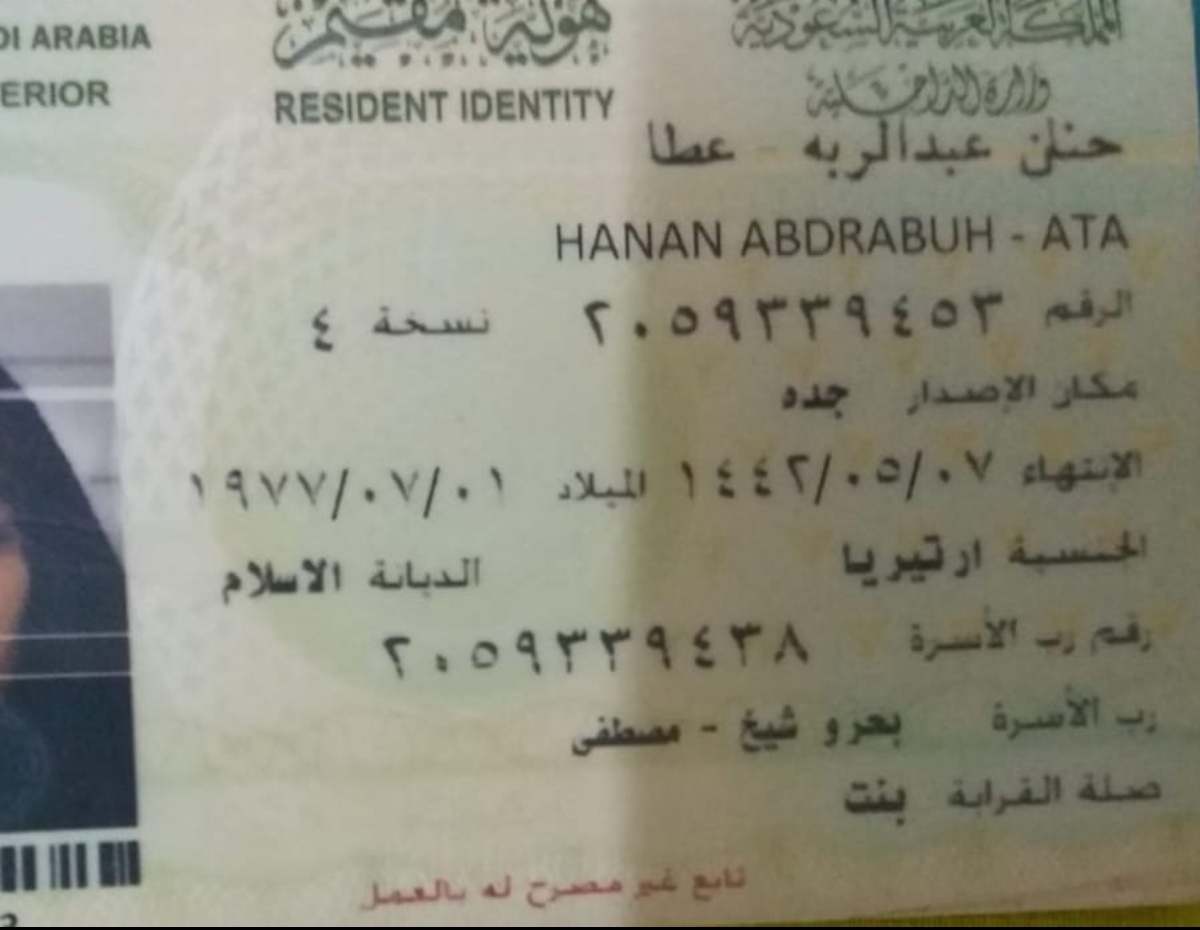 المملكة العربية السعودية
وزارة الداخلية
هوية مقيم
RESIDENT IDENTITY
DI ARABIA
ERIOR
حنان عبدالربه - عطا
HANAN ABDRABUH - ATA
الرقم ٢٠٥٩٣٣٩٤٥٣ نسخة ٤
مكان الإصدار جده
الإنتهاء ١٤٤٢/٠٥/٠٧ الميلاد ١٩٧٧/٠٧/٠١
الجنسية ارتيريا الديانة الاسلام
رقم رب الأسرة ٢٠٥٩٣٣٩٤٣٨
رب الأسرة بحرو شيخ - مصطفى
صلة القرابة بنت
تابع غير مصرح له بالعمل